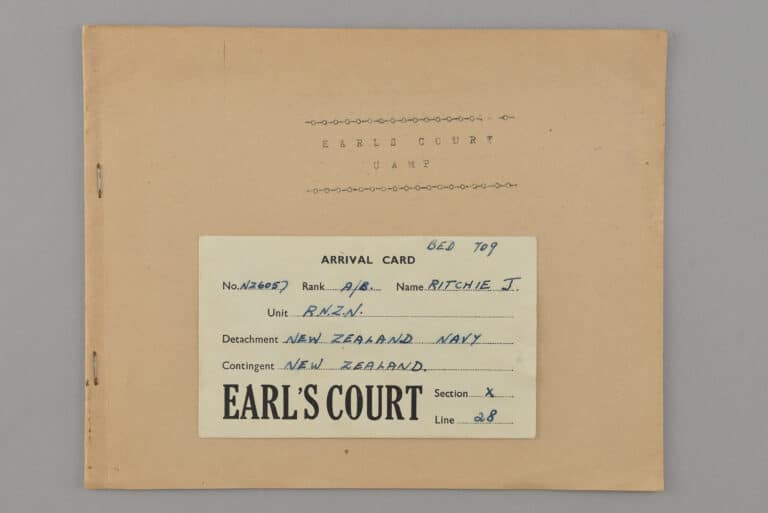 EARLS COURT
CAMP
BED 709
ARRIVAL CARD
No. NZ6057 Rank A/B. Name RITCHIE J.
Unit R.N.Z.N.
Detachment NEW ZEALAND NAVY
Contingent NEW ZEALAND.
EARL'S COURT
Section X
Line 28